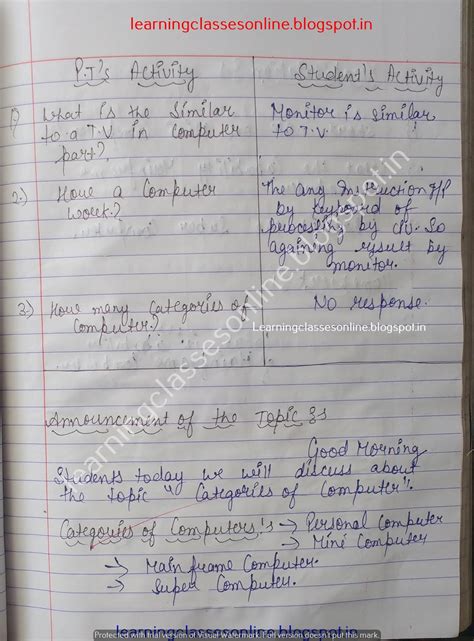 learningclassesonline.blogspot.in
P.T's Activity
Student's Activity
1) What is the similar
to a T.V in computer
part?
Monitor is similar
to T.V.
2.) How a Computer
work?
The any Instruction I/P
by keyboard of
processing by CPU. So
againing result by
monitor.
3.) How many Categories of
Computer?
No response.
Learningclassesonline.blogspot.in
learningclassesonline.blogspot.in
Announcement of the Topic :-
Good Morning
Students today we will discuss about
the topic "Categories of Computer".
Categories of Computers :- → Personal Computer
→ Mini Computer
→ Mainframe Computer.
→ Super Computer.
Protected with trial version of Visual Watermark. Full version doesn't put this mark.
learningclassesonline.blogspot.in